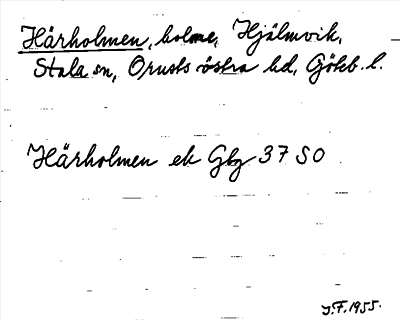 Härholmen, holme, Hjälmvik,
Stala sn, Orusts östra hd, Göteb. l.
Härholmen ek Gbg 37 SO
J.F. 1955.